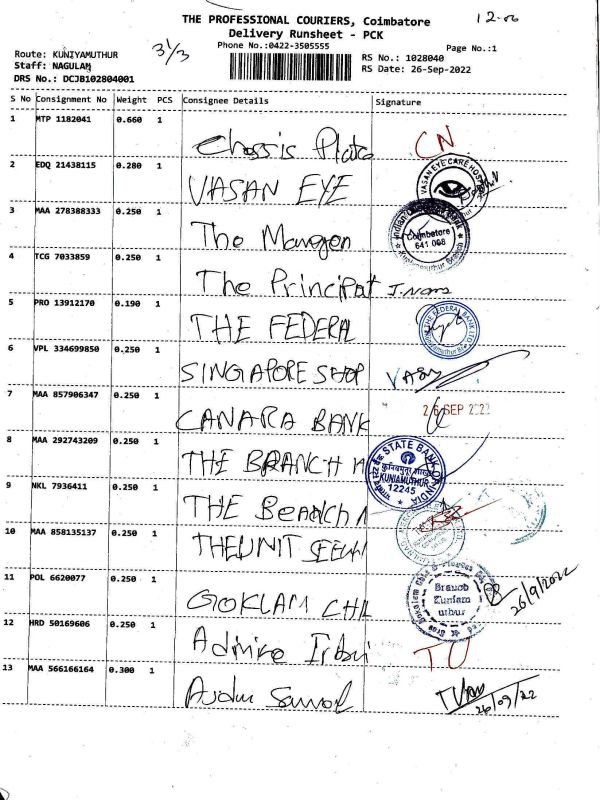 THE PROFESSIONAL COURIERS, Coimbatore
12-00
Delivery Runsheet - PCK
Phone No.:0422-3505555
Page No.:1
Route: KUNIYAMUTHUR
31/3
RS No.: 1028040
Staff: NAGULAN
RS Date: 26-Sep-2022
DRS No.: DCJB102804001
S No Consignment No Weight PCS Consignee Details Signature
1 MTP 1182041 0.660 1
Chassis Plate CN
2 EDQ 21438115 0.280 1
VASAN EYE
VASAN EYE CARE HOSPITAL
3 MAA 278388333 0.250 1
The Manager
Indian Bank
Coimbatore
641 008
Kuniamuthur Branch
4 TCG 7033859 0.250 1
The Principal
5 PRO 13912170 0.190 1
THE FEDERAL
THE FEDERAL BANK LTD.
Kuniamuthur
6 VPL 334699850 0.250 1
SINGAPORE SHOP
7 MAA 857906347 0.250 1
CANARA BANK
26 SEP 2022
8 MAA 292743209 0.250 1
THE BRANCH M
STATE BANK OF INDIA
KUNIAMUTHUR
12245
9 NKL 7936411 0.250 1
THE BRANCH M
10 MAA 858135137 0.250 1
THE UNIT
11 POL 6620077 0.250 1
GOKLAM CHI
Branch
Kuniam
uthur
26/9/2022
12 HRD 50169606 0.250 1
Admire TU
13 MAA 566166164 0.300 1
26/09/22